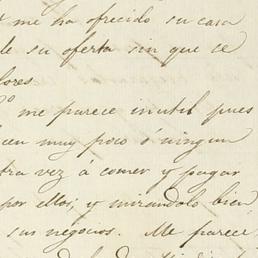 me ha ofrecido su casa
de su oferta sin que se
lores
me parece inutil pues
cen muy poco ó ningun
tra vez á comer y pagar
por ellos; y mirandolo bien
sus negocios. Me parece